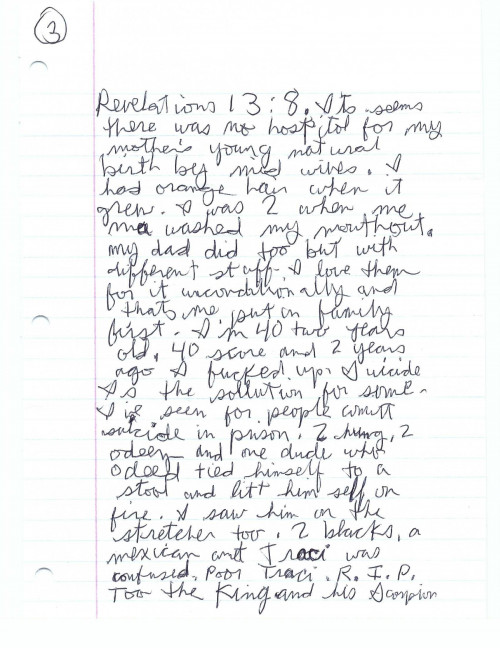 3
Revelations 13:8. Its seems
there was no hospitol for my
mother's young natural
birth by mid wives. I
had orange hair when it
grew. I was 2 when me
ma washed my mouthout.
my dad did too but with
different stuff. I love them
for it unconditionally and
thats me, put in family
first. I'm 40 two years
old. 40 score and 2 years
ago I fucked up. Suicide
Is the sollution for some.
I've seen for people comitt
suicide in prison. 2 hung, 2
odeed and one dude who
odeed tied himself to a
stool and litt him self on
fire. I saw him on the
stretcher too. 2 blacks, a
mexican and Traci was
confused. Poor Traci. R.I.P.
Too the King and his Scorpion